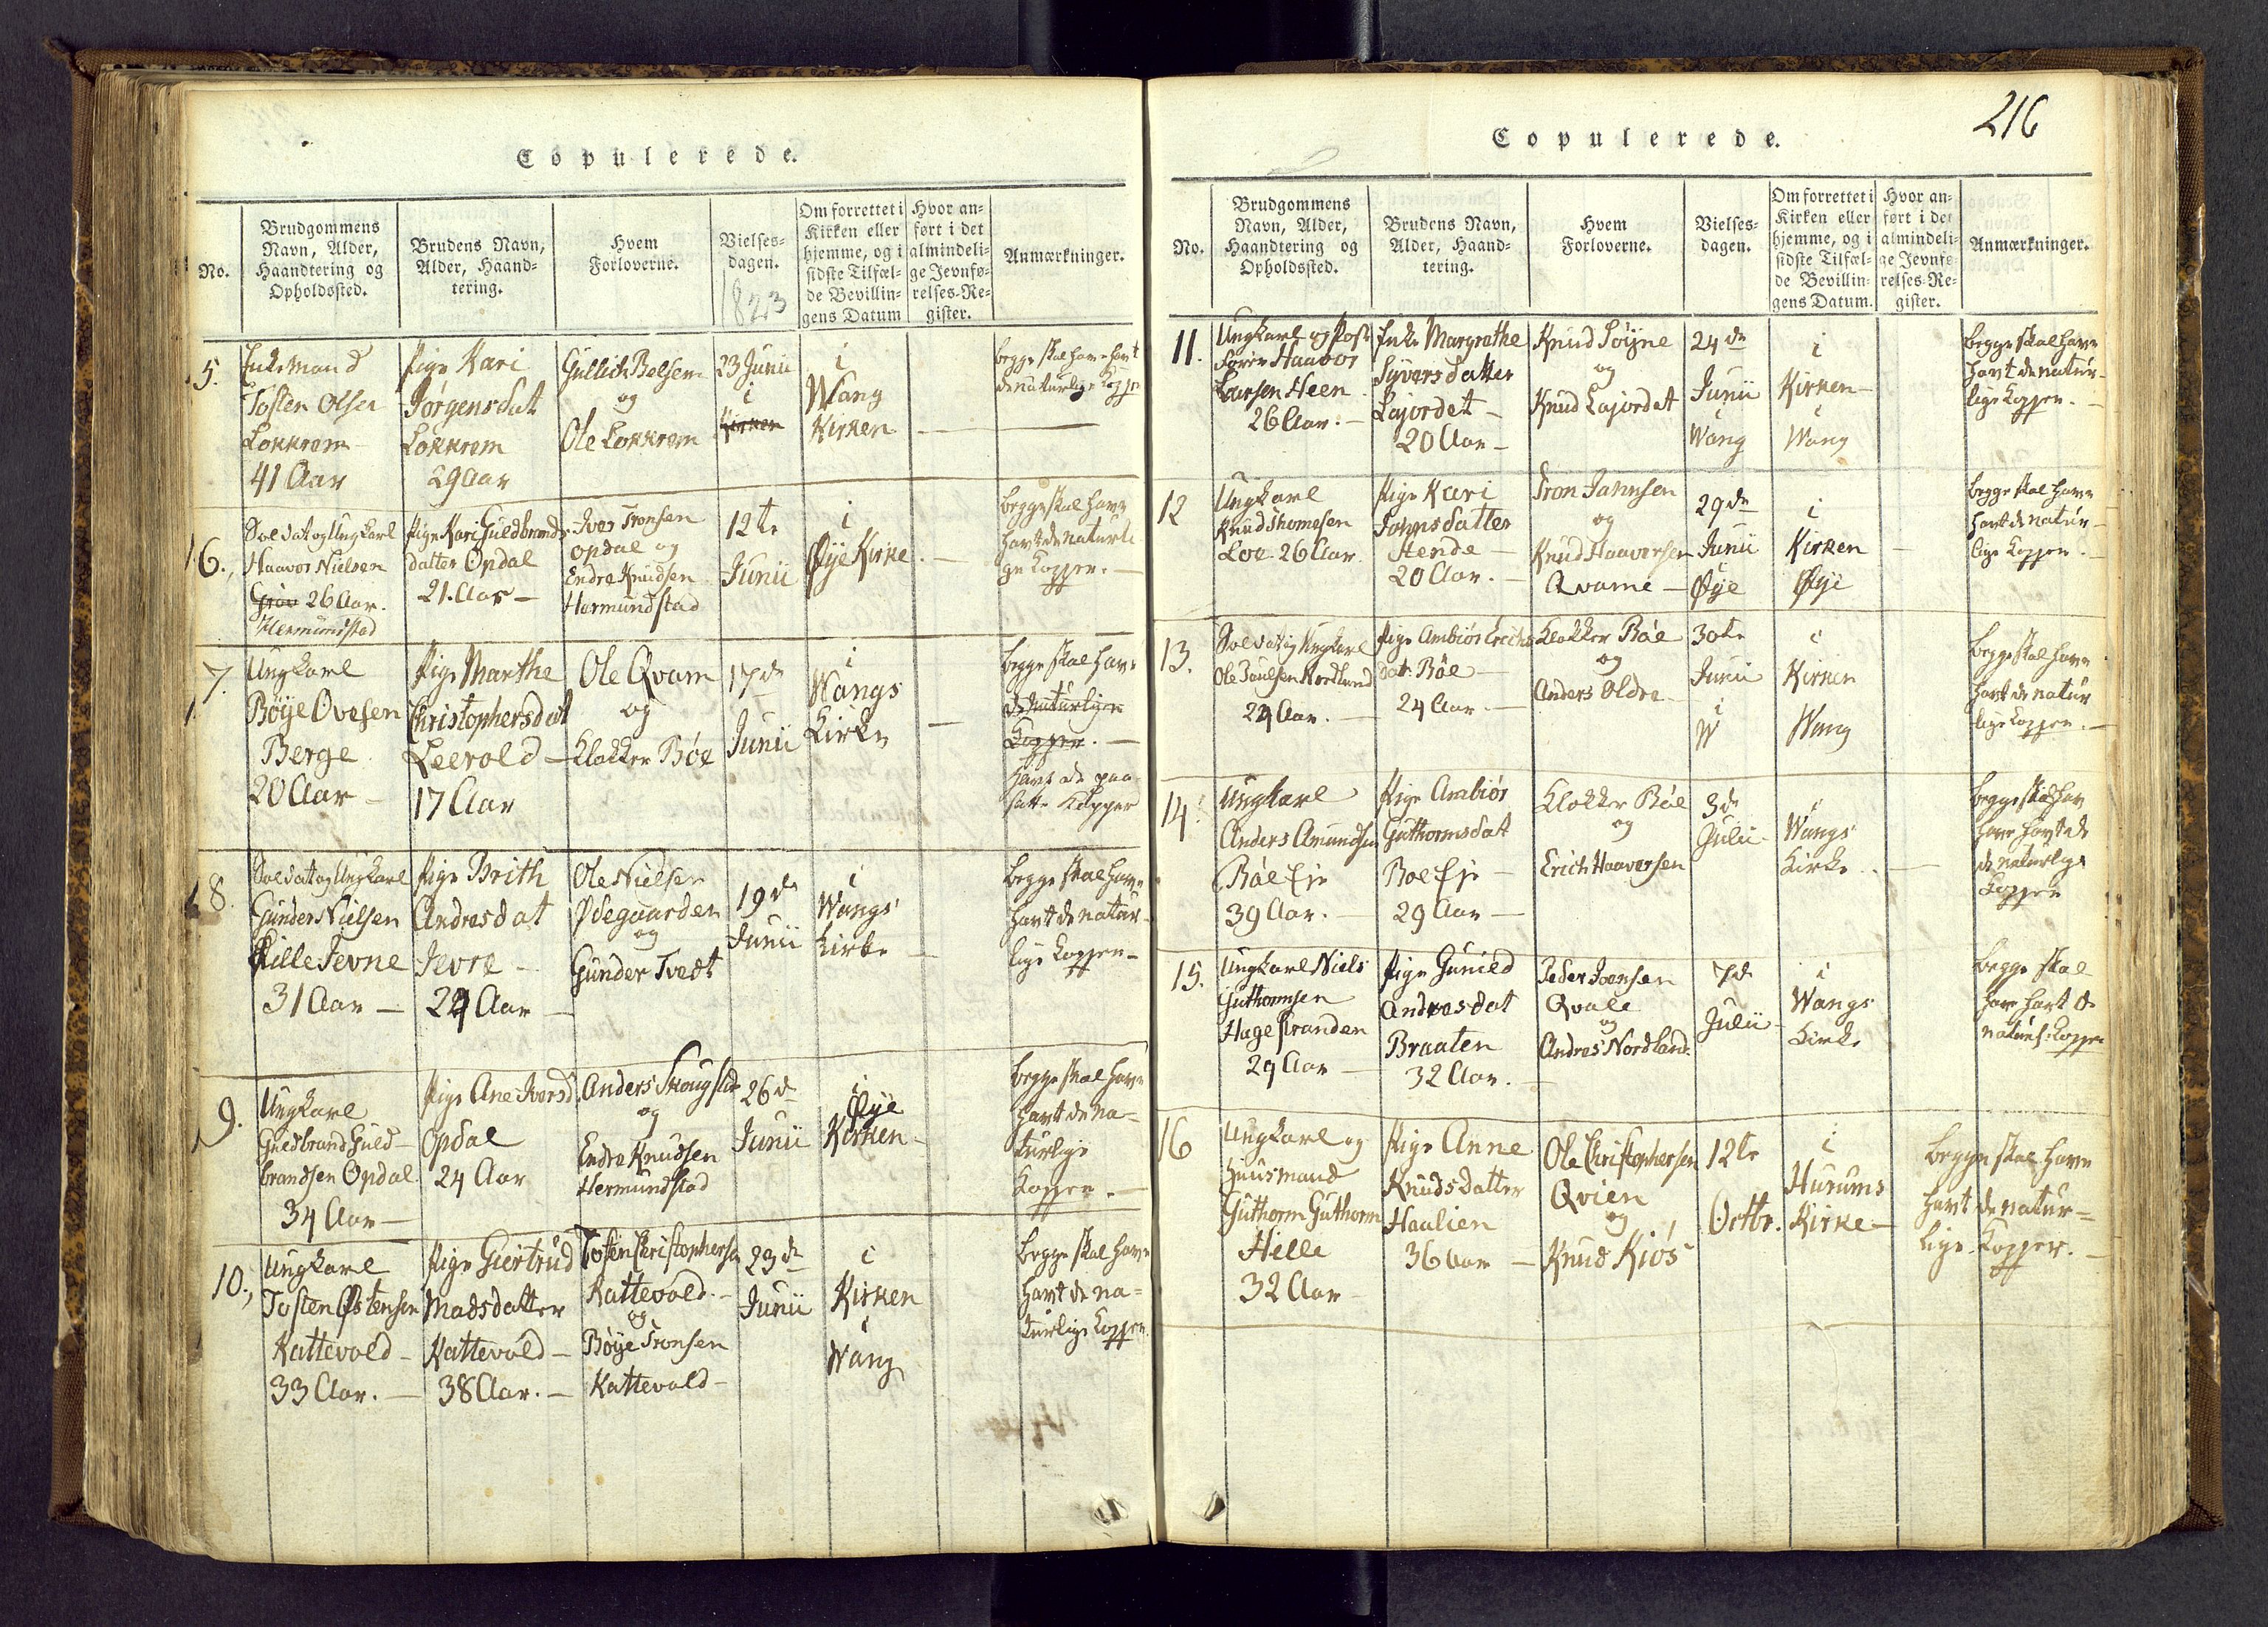 Copulerede.
No.
Brudgommens
Navn, Alder,
Haandtering og
Opholdssted.
Brudens Navn,
Alder, Haand-
tering.
Hvem
Forloverne.
Vielses-
dagen.
1823
Om forrettet i
Kirken eller
hjemme, og i
sidste Tilfæl-
de Bevillin-
gens Datum
Hvor an-
ført i det
almindeli-
ge Jevnfø-
relses-Re-
gister.
Anmærkninger.
5.
Enkemand
Tosten Olsen
Lokkrem
41 Aar
Pige Kari
Jørgensdat
Lokkrem
29 Aar
Gullich Belsem
og
Ole Lokkrem
23 Junii
i
Kirken
i
Wang
Kirken
begge skal have havt
de naturlige Kopper
6.
Soldat og Ungkarl
Haavor Nielsen
Grøv 26 Aar.
Hermundstad
Pige Kari Guldbrands
datter Opdal
21. Aar
Iver Tronsen
Opdal og
Endre Knudsen
Hermundstad
12te
Junii
i
Øye Kirke
begge skal have
havt de naturli
ge Kopper.
7.
Ungkarl
Bøye Ovesen
Berge
20 Aar
Pige Marthe
Christophersdat
Leerold
17 Aar
Ole Qvam
og
Klokker Bøe
17de
Junii
i
Wangs
Kirke
begge skal have
de naturlige
Kopper.
havt de paa
satte Kopper
8.
Soldat og Ungkarl
Gunder Nielsen
Lille Jevne
31 Aar
Pige Brith
Andresdat
Jevre
24 Aar
Ole Nielsen
Ødegaarden
og
Gunder Tvedt
19de
Junii
i
Wangs
Kirke
begge skal have
havt de natur-
lige Kopper
9.
Ungkarl
Guldbrand Guld-
brandsen Opdal
34 Aar
Pige Ane Iversd.
Opdal
24 Aar
Anders Skougstad
og
Endre Knudsen
Hermundstad
26de
Junii
i
Øye
Kirken
begge skal have
havt de na-
turlige
Kopper.
10.
Ungkarl
Tosten Østensen
Kattevold
33 Aar.
Pige Giertrud
Madsdatter
Kattevold
38 Aar.
Tosten Christophersen
Kattevold
og
Bøye Tronsen
Kattevold
23de
Junii
i
Kirken
i
Wang
begge skal have
havt de na-
turlige Kopper.
216
Copulerede.
No.
Brudgommens
Navn, Alder,
Haandtering og
Opholdssted.
Brudens Navn,
Alder, Haand-
tering.
Hvem
Forloverne.
Vielses-
dagen.
Om forrettet i
Kirken eller
hjemme, og i
sidste Tilfæl-
de Bevillin-
gens Datum.
Hvor an-
ført i det
almindeli-
ge Jevnfø-
relses-Re-
gister.
Anmærkninger.
11.
Ungkarl og Post
fører Haavor
Larsen Heen
26 Aar.
Enke Margrethe
Syversdatter
Lajordet
20 Aar
Knud Søyne
og
Knud Lajordet
24de
Junii
i
Wang
i
Kirken
i
Wang
begge skal have
havt de natur-
lige Kopper.
12
Ungkarl
Knud Thomesen
Loe 26 Aar
Pige Kari
Johnsdatter
Stende
20 Aar.
Tron Jahnsen
og
Knud Haaversen
Qvame
29de
Junii
i
Øye
i
Kirken
i
Øye
begge skal have
havt de natur-
lige Kopper.
13.
Soldat og Ungkarl
Ole Poulsen Nordland
24 Aar.
Pige Ambiør Erichs
dat. Bøe
24 Aar.
Klokker Bøe
og
Anders Oldre
30te
Junii
i
W
i
Kirken
Wang
begge skal have
havt de natur
lige Kopper.
14.
Ungkarl
Anders Amundsen
Bøe Eje
39 Aar.
Pige Ambiør
Guthormsdat
Boe Eje
29 Aar
Klokker Bøe
og
Erich Haaversen
3de
Julii
i
Wangs
Kirke
begge skal hav
have havt de
de naturlige
Kopper
15.
Ungkarl Niels
Guthormsen
Hagestranden
29 Aar
Pige Gunild
Andresdat
Braaten
32 Aar.
Peder Joensen
Qvale
og
Andres Nordland.
7de
Julii
i
Wangs
Kirke
begge skal
have havt de
naturl: Kopper
16
Ungkarl og
Huusmand
Guthorm Guthorm
Helle
32 Aar
Pige Anne
Knudsdatter
Haalien
36 Aar
Ole Christophersen
Qvien
og
Knud Kiøs
12te
Octbr.
i
Hurums
Kirke
begge skal have
havt de natur=
lige Kopper.